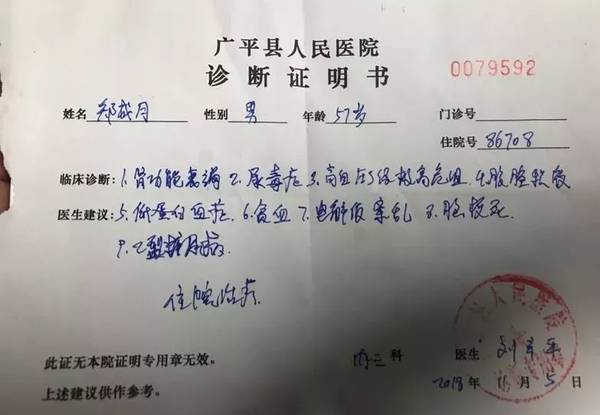 广平县人民医院
诊断证明书
0079592
姓名 郑成月 性别 男 年龄 57岁 门诊号
住院号 86708
临床诊断: 1.肾功能衰竭 2.尿毒症 3.高血压3级极高危组 4.腹腔积液
医生建议: 5.低蛋白血症 6.贫血 7.电解质紊乱 8.脑梗死
9.2型糖尿病
住院治疗
此证无本院证明专用章无效。 内三科 医生
上述建议供作参考。 2018年11月5日